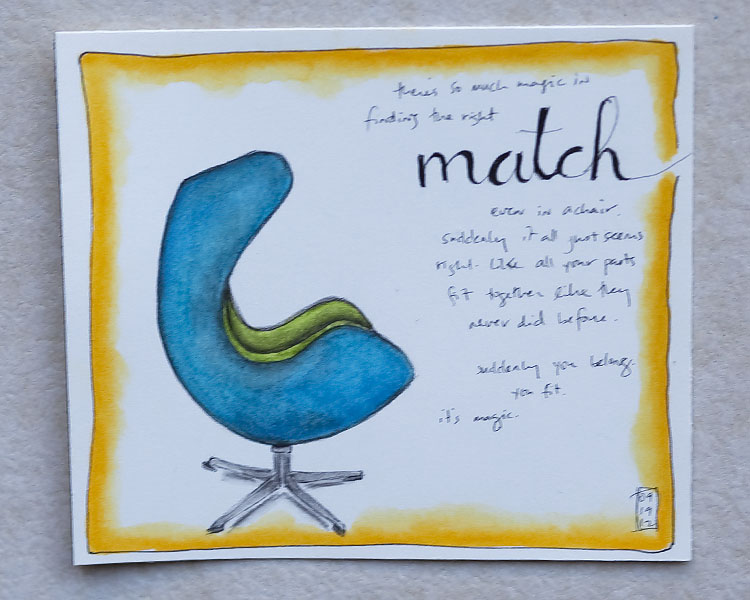 there's so much magic in
finding the right
match
even in a chair.
suddenly it all just seems
right. Like all your parts
fit together like they
never did before.
suddenly you belong.
you fit.
it's magic.
09
19
12